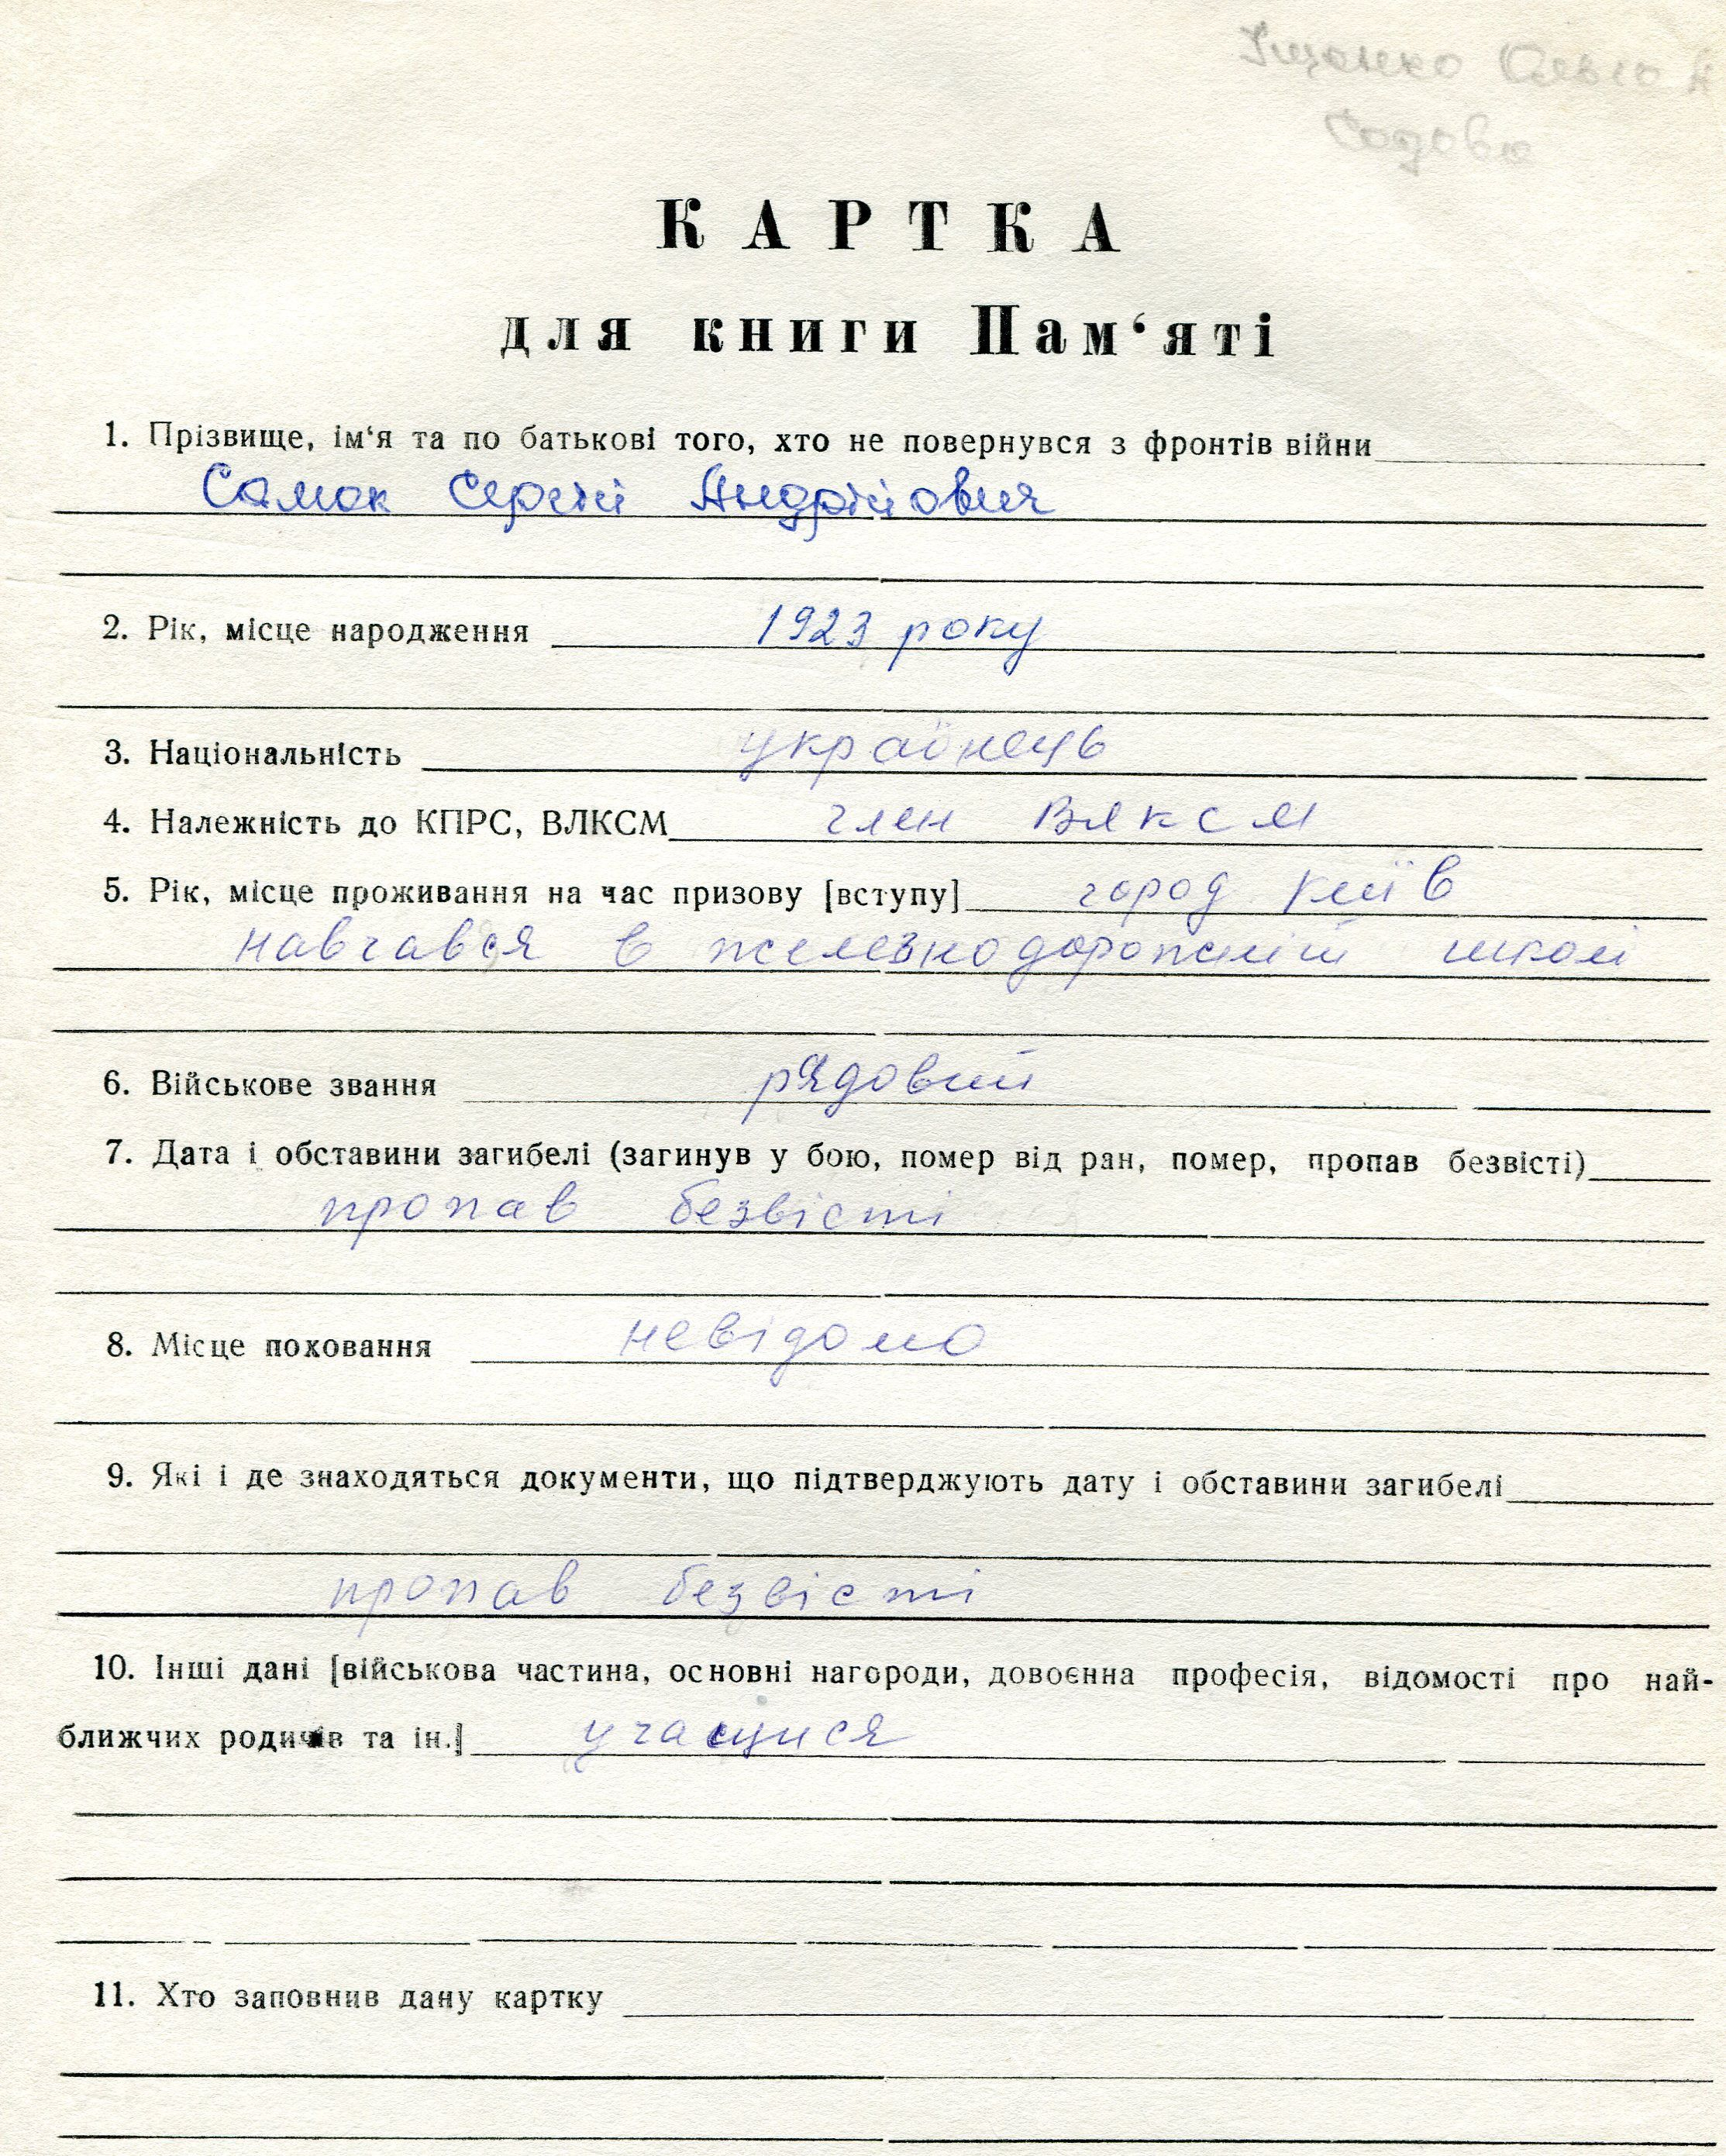 Іщенко
КАРТКА
для книги Пам‘яті
1. Прізвище, ім‘я та по батькові того, хто не повернувся з фронтів війни
Самок Сергій Андрійович
2. Рік, місце народження 1923 року
3. Національність українець
4. Належність до КПРС, ВЛКСМ член ВЛКСМ
5. Рік, місце проживання на час призову [вступу] город Київ
навчався в железнодорожній школі
6. Військове звання рядовий
7. Дата і обставини загибелі (загинув у бою, помер від ран, помер, пропав безвісті)
пропав безвісті
8. Місце поховання невідомо
9. Які і де знаходяться документи, що підтверджують дату і обставини загибелі
пропав безвісті
10. Інші дані [військова частина, основні нагороди, довоєнна професія, відомості про най-
ближчих родичів та ін.] учащися
11. Хто заповнив дану картку